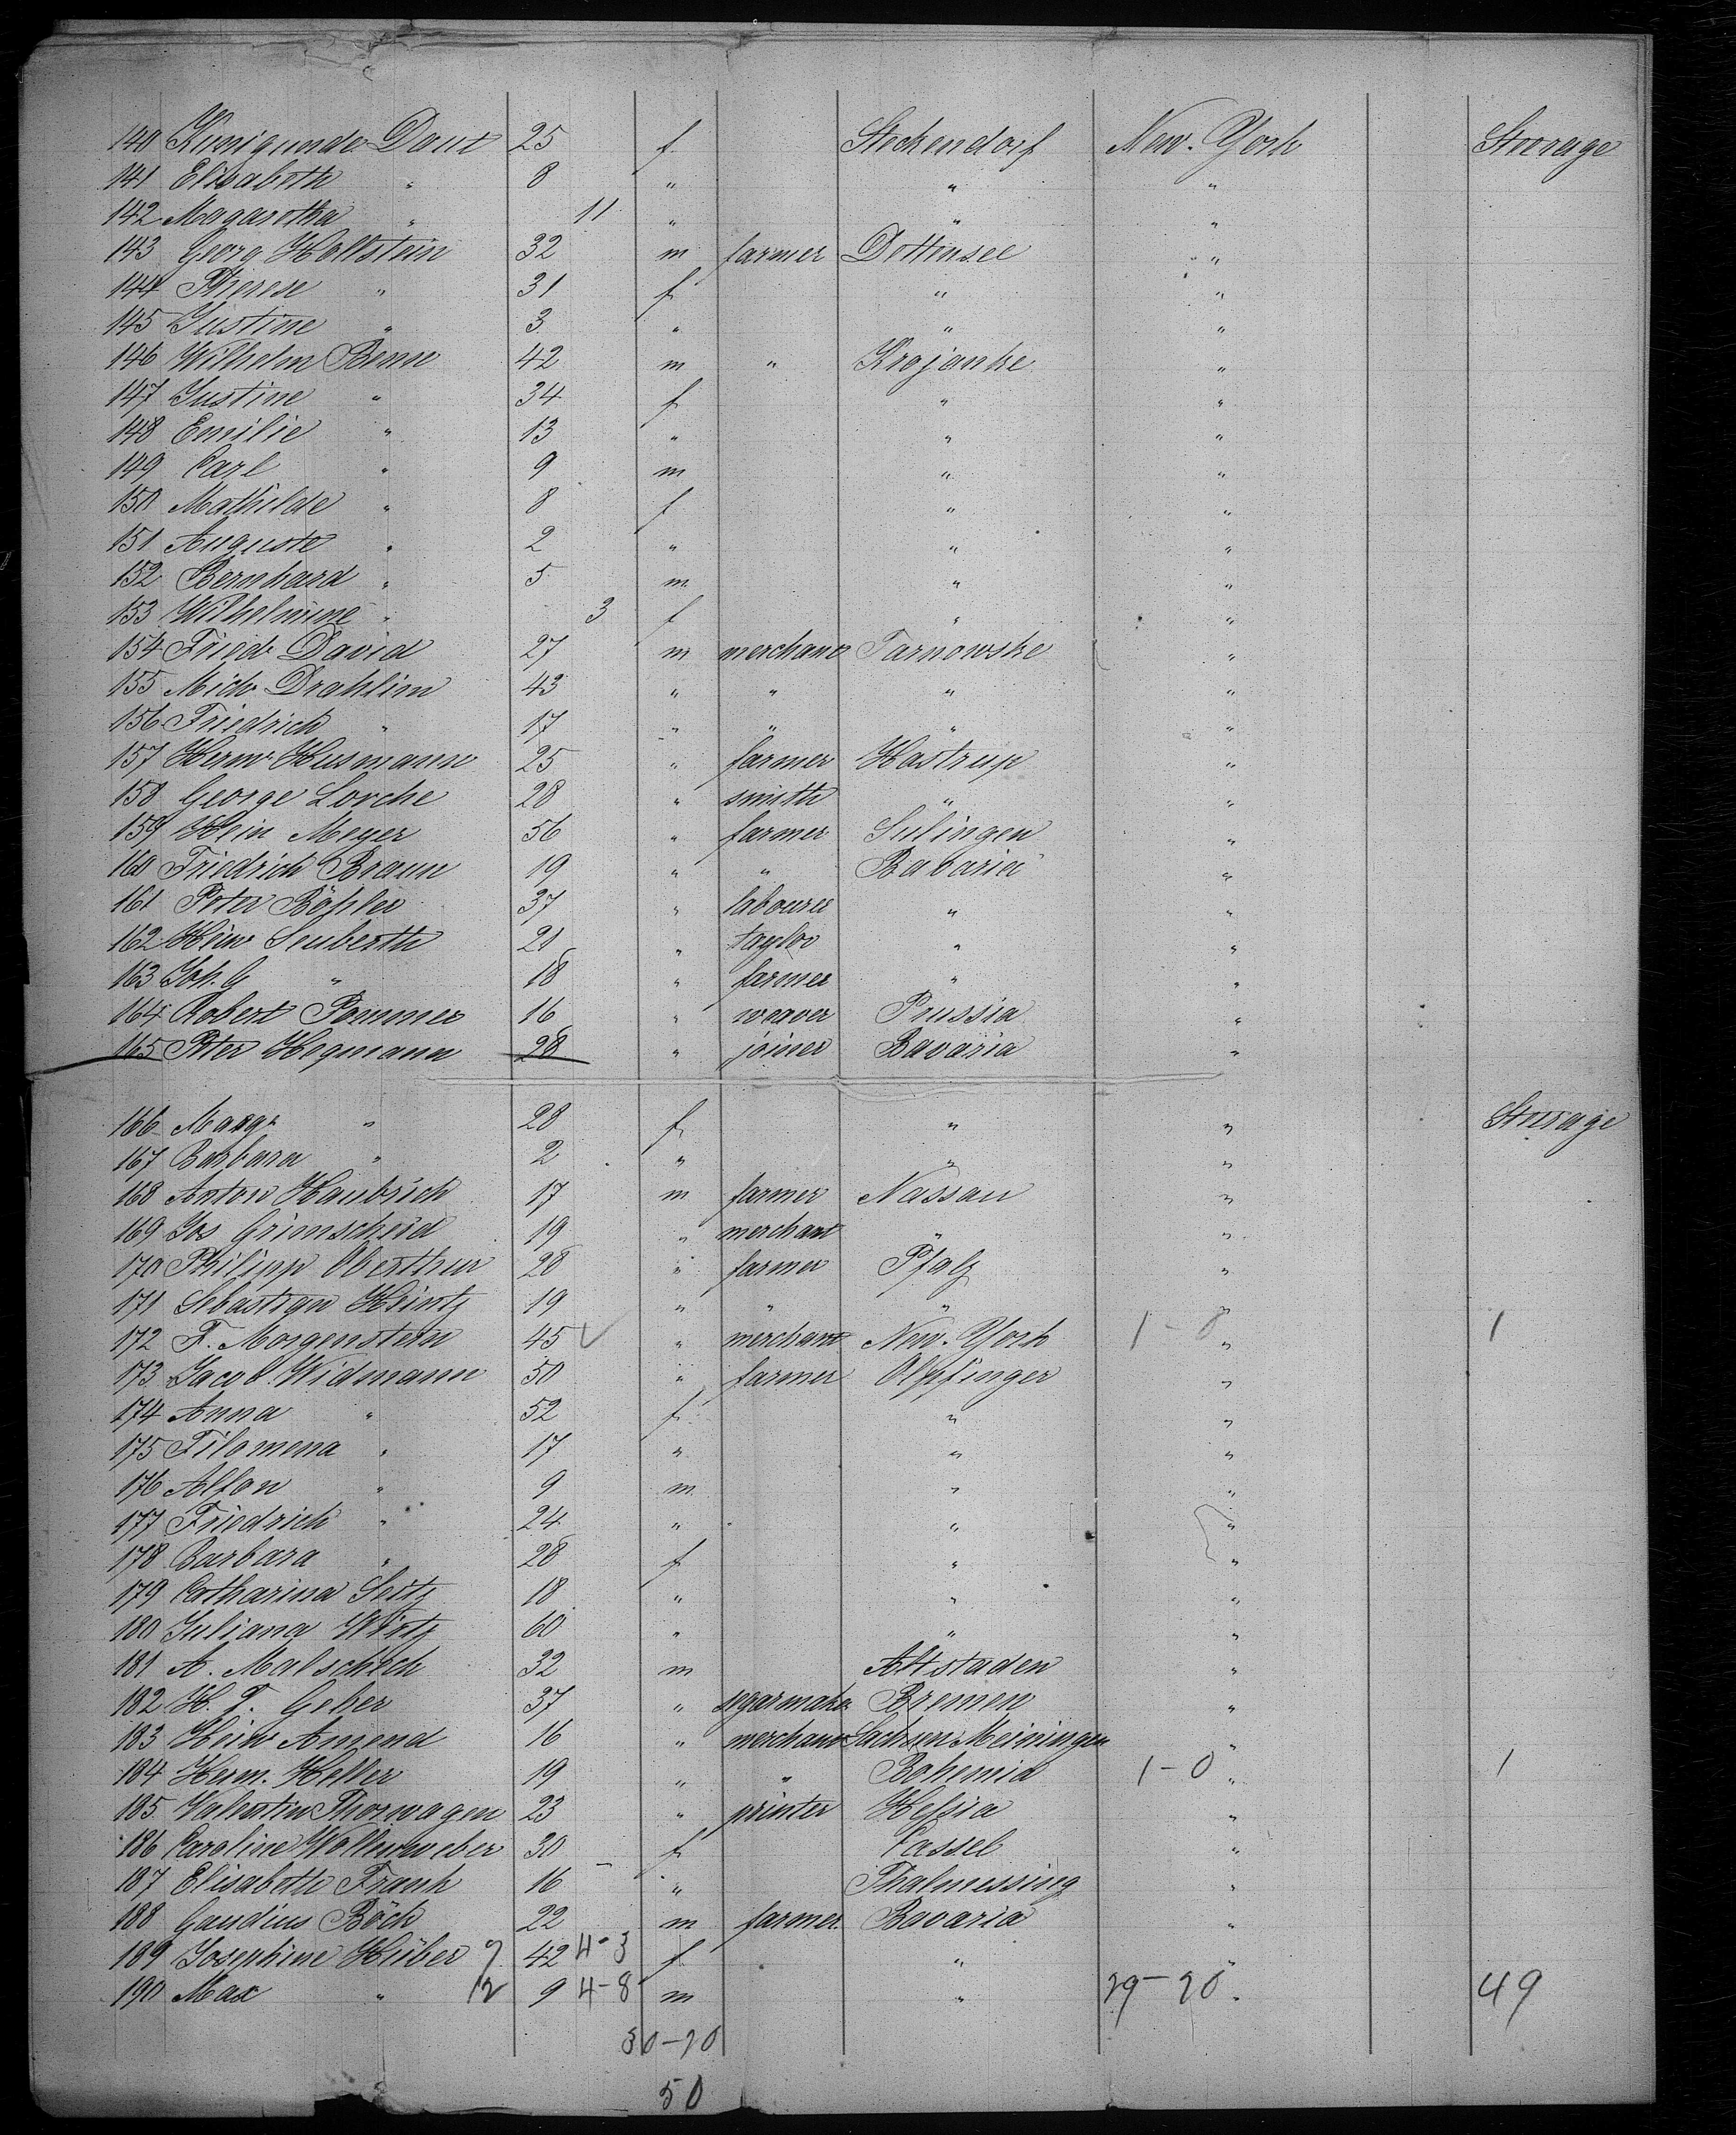 140 Kunigunde Daut 25 f Steckendorf New-York Steerage
141 Elisabeth " 8 " " "
142 Magaretha " 11 " " "
143 Georg Hollstein 32 m farmer Dottensee "
144 Therese " 31 f " "
145 Justine " 3 " " "
146 Wilhelm Benn 42 m " Krojanke "
147 Justine " 34 f " "
148 Emilie " 13 " " "
149 Carl " 9 m " "
150 Mathilde " 8 f " "
151 Auguste " 2 " " "
152 Bernhard " 5 m " "
153 Wilhelmine " 3 f " "
154 Friedr David 27 m merchant Tarnowske "
155 Mich Drahlim 43 " " " "
156 Friedrich " 17 " " " "
157 Herm Husmann 25 " farmer Hastrup "
158 George Lorche 28 " smith " "
159 Hein Meyer 56 " farmer Sulingen "
160 Friedrich Braun 19 " " Babaria "
161 Peter Böhler 37 " labourer " "
162 Heinr Seuberth 21 " taylor " "
163 Joh. G " 18 " farmer " "
164 Robert Pommer 16 " weaver Prussia "
165 Peter Hegmann 28 " joiner Bavaria "
166 Margr " 28 f " " Steerage
167 Barbara " 2 " " "
168 Anton Haubrich 17 m farmer Nassau "
169 Jos Grimscheid 19 " merchant " "
170 Philipp Oberthur 28 " farmer Pfalz "
171 Sebastian Heintz 19 " " " "
172 F. Morgenstern 45 " merchant New-York 1-0 " 1
173 Jacob Widmann 50 " farmer Olpfinger "
174 Anna " 52 f " "
175 Filomena " 17 " " "
176 Alfon " 9 m " "
177 Friedrich " 24 " " "
178 Barbara " 28 f " "
179 Catharina Seitz 18 " " "
180 Juliana Wirtz 60 " " "
181 A. Malscheck 32 m Altstaden "
182 H. F. Geher 37 " segarmaker Bremen "
183 Heinr Amend 16 " merchant Sachsen Meiningen "
184 Herm. Heller 19 " " Bohemia 1-0 " 1
185 Valentin Thorwagen 23 " printer Hessia "
186 Caroline Wollenweber 30 f Cassel "
187 Elisabeth Frank 16 " Thalmessing "
188 Gaudius Böck 22 m farmer Bavaria "
189 Josephine Hüber 42 4-3 f " "
190 Max " 12 9 4-8 m " 29-20 " 49
30-20
50